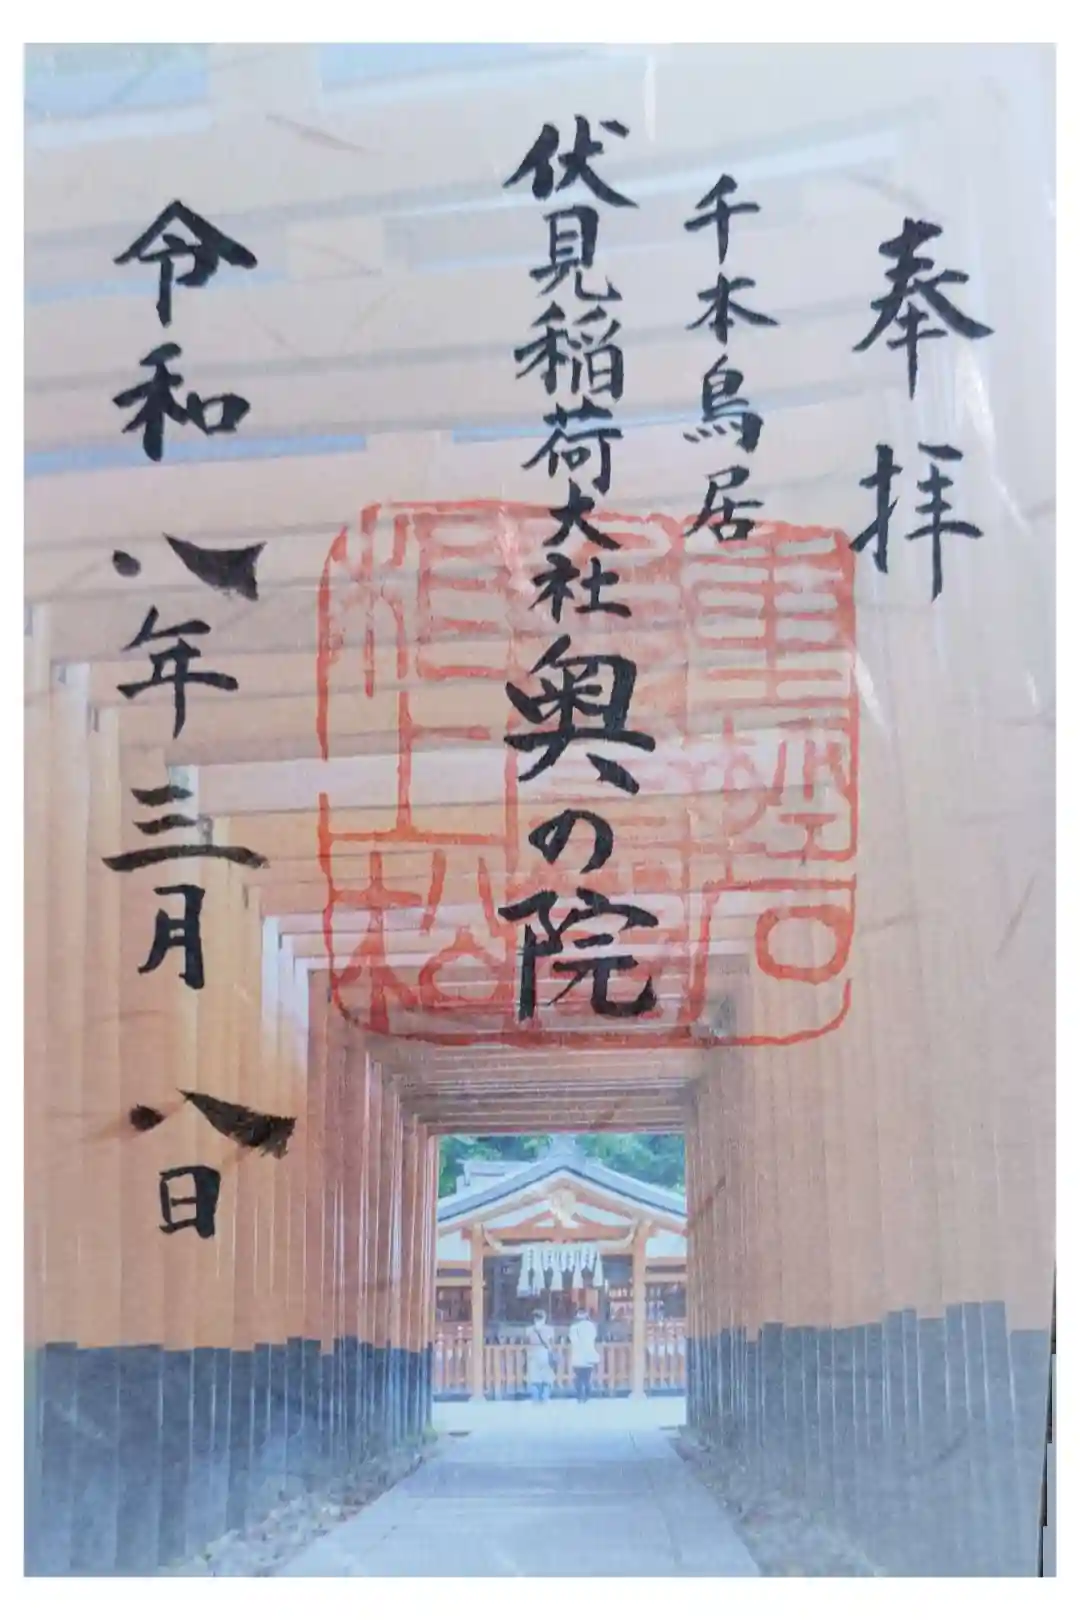 奉拝
千本鳥居
伏見稲荷大社奥の院
令和八年三月八日